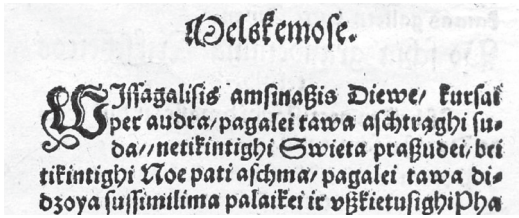 Melskemose.
WIſſagaliſis amſinaßis Diewe/ kurſai
per audra/ pagalei tawa aſchtrąghi ſu-
da//netikintighi Swieta praßudei/ bei
tikintighi Noe pati aſchma/ pagalei tawa di-
dzoya ſuſſimilima palaikei ir vßkietuſighi Pha